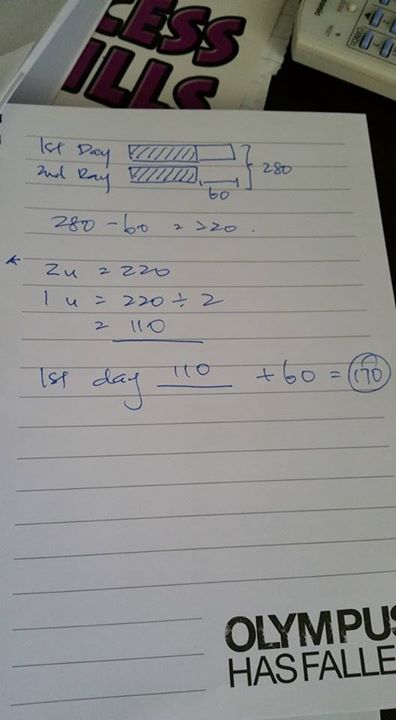 CESS
ILLS
1st Day
2nd Day
280
60
280 - 60 = 220.
2u = 220
1u = 220 ÷ 2
= 110
1st day 110 + 60 = 170
OLYMPUS
HAS FALLE